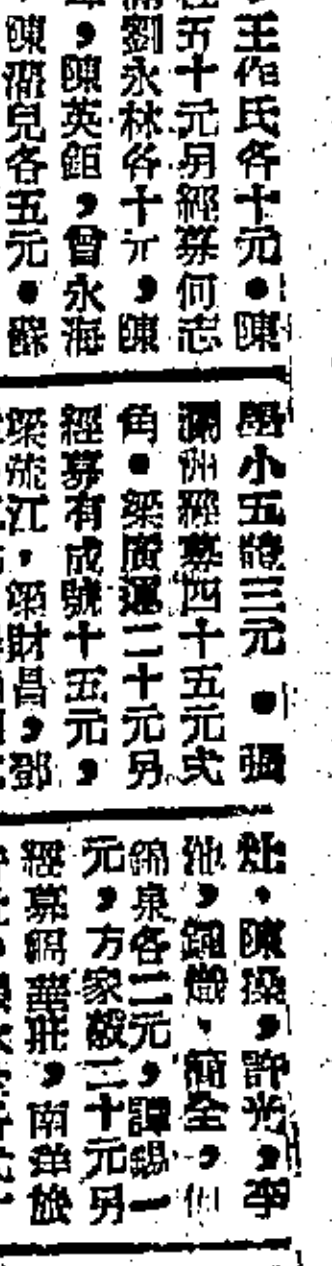 王作氏各十元●陳
五十元另經募何志
劉永林各十元，陳
，陳英鉅，曾永海
陳濯兒各五元●蘇
學小五體三元●張
瀾洲經募四十五元弍
角●梁廣運二十元另
經募有成號十五元，
梁茂江，梁財昌，鄧
灶，陳操，許光，李
池，鍾熾，簡全，何
錦泉各二元，譚錫一
元，方家毅二十元另
經募綢華莊，南洋旅